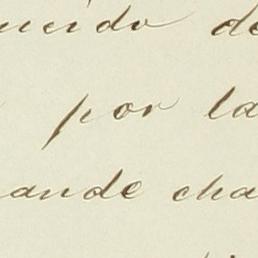 ucido de
por la
ande cha